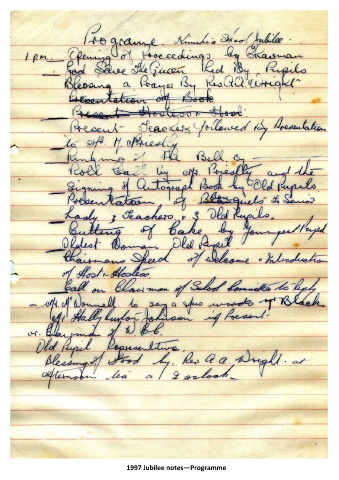 Programme. Kimihi School Jubilee.
1 P.M. Opening of Proceedings by Chairman
God Save The Queen Led By Pupils
Blessing & Prayer By Rev A A Wright
Presentation of Book
Present Hostess & Host
Present Teachers followed By Presentation
to Mrs M Priestly
Ringing of The Bell By —
Roll Call by Mrs Priestly and the
Signing of Autograph Book by Old Pupils.
Presentation of Bouquets to Senior
Lady, 3 Teachers, & 3 Old Pupils.
Cutting of Cake by Youngest Pupil
Oldest Woman Old Pupil
Chairmans Speed of Welcome & Introduction
of Host & Hostess
Call on Chairman of School Committee to reply
Mr McDonnell to say a few words Mr Black
Mr Hallyburton Johnson if Present.
or Chairman of W.E.B.
Old Pupil Representative.
Blessing of Food by. Rev A A. Wright. at
afternoon tea at 3 o'clock.
1997 Jubilee notes—Programme